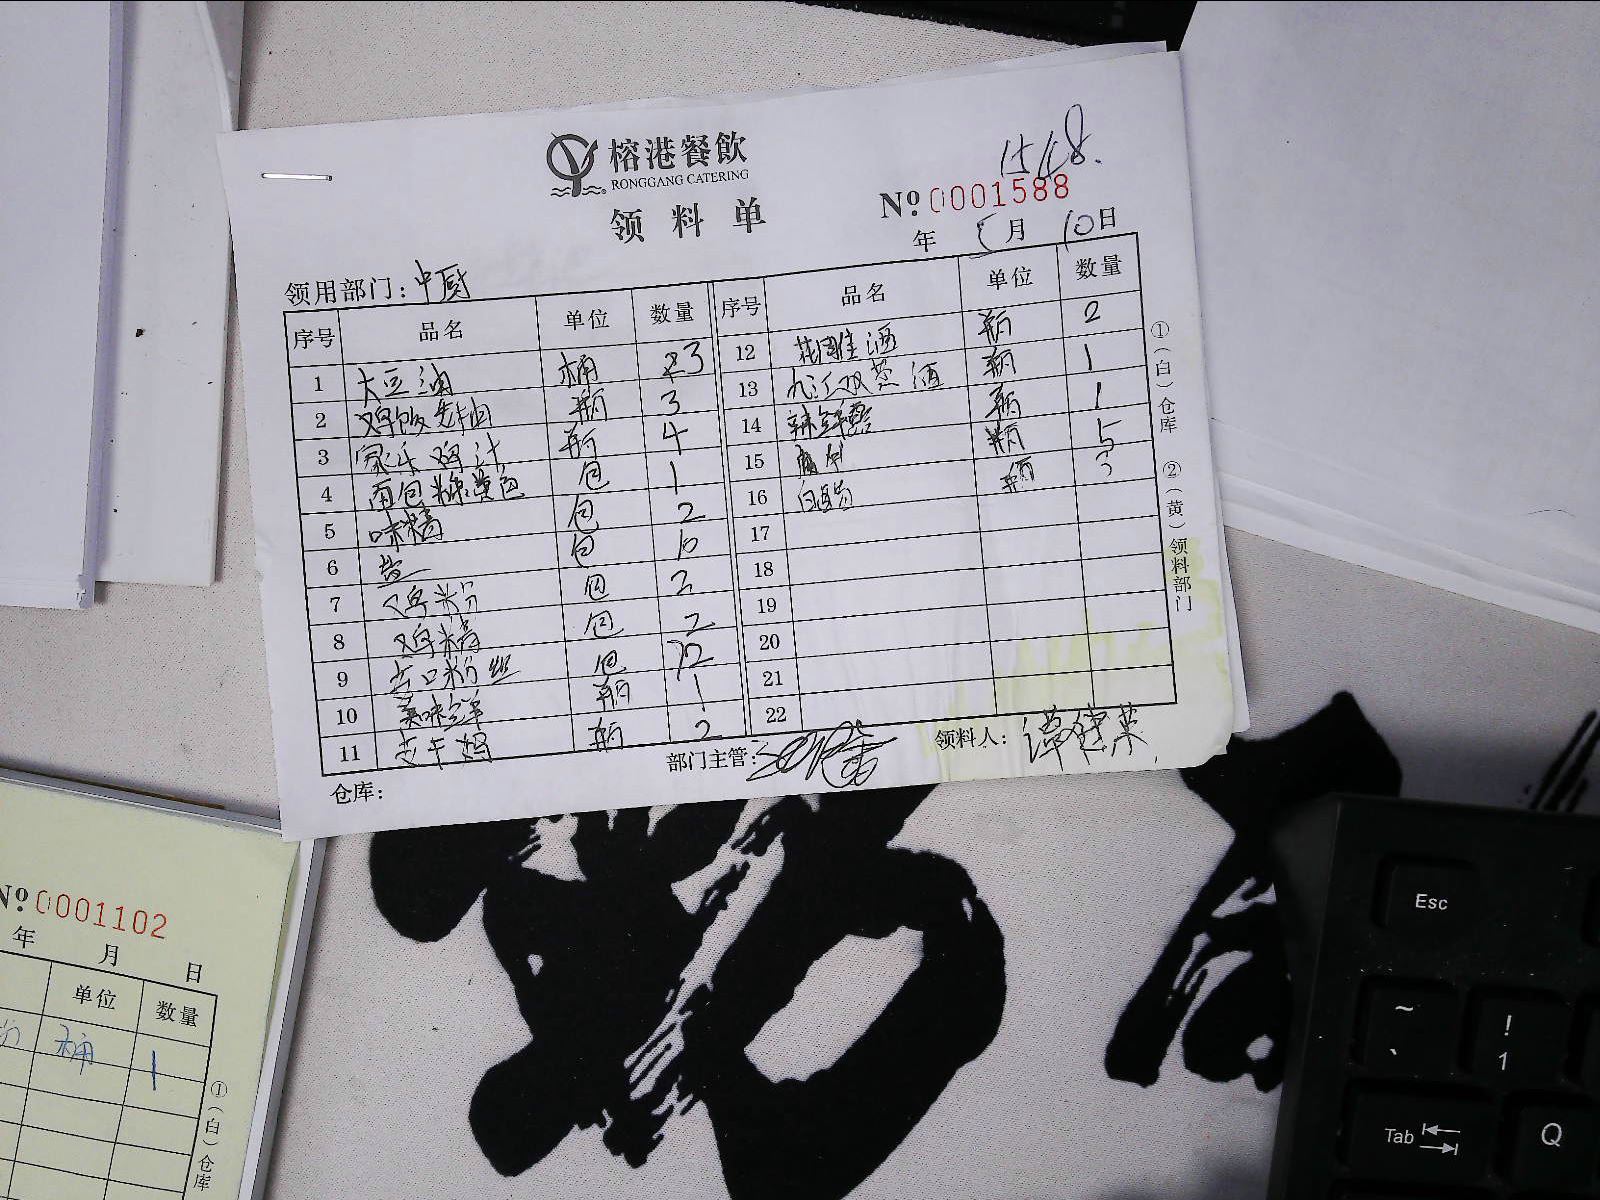 榕港餐飲
RONGGANG CATERING
领料单
15/18.
№ 0001588
年 5月 10日
领用部门：中厨
序号 品名 单位 数量
1 大豆油 桶 3
2 鸡饭老抽 瓶 3
3 家乐鸡汁 瓶 4
4 面包糠黄色 包 1
5 味精 包 2
6 盐 包 10
7 鸡粉 包 3
8 鸡精 包 2
9 龙口粉丝 包 12
10 美味鲜 瓶 1
11 老干妈 瓶 2
序号 品名 单位 数量
12 花雕酒 瓶 2
13 九江双蒸酒 瓶 1
14 辣鲜露 瓶 1
15 瓶 5
16 瓶 3
17
18
19
20
21
22
①（白）仓库 ②（黄）领料部门
仓库：
部门主管：
领料人：谭健荣
№ 0001102
年 月 日
单位 数量
桶 1
①（白）仓库
Esc
~
、
!
1
Tab
Q